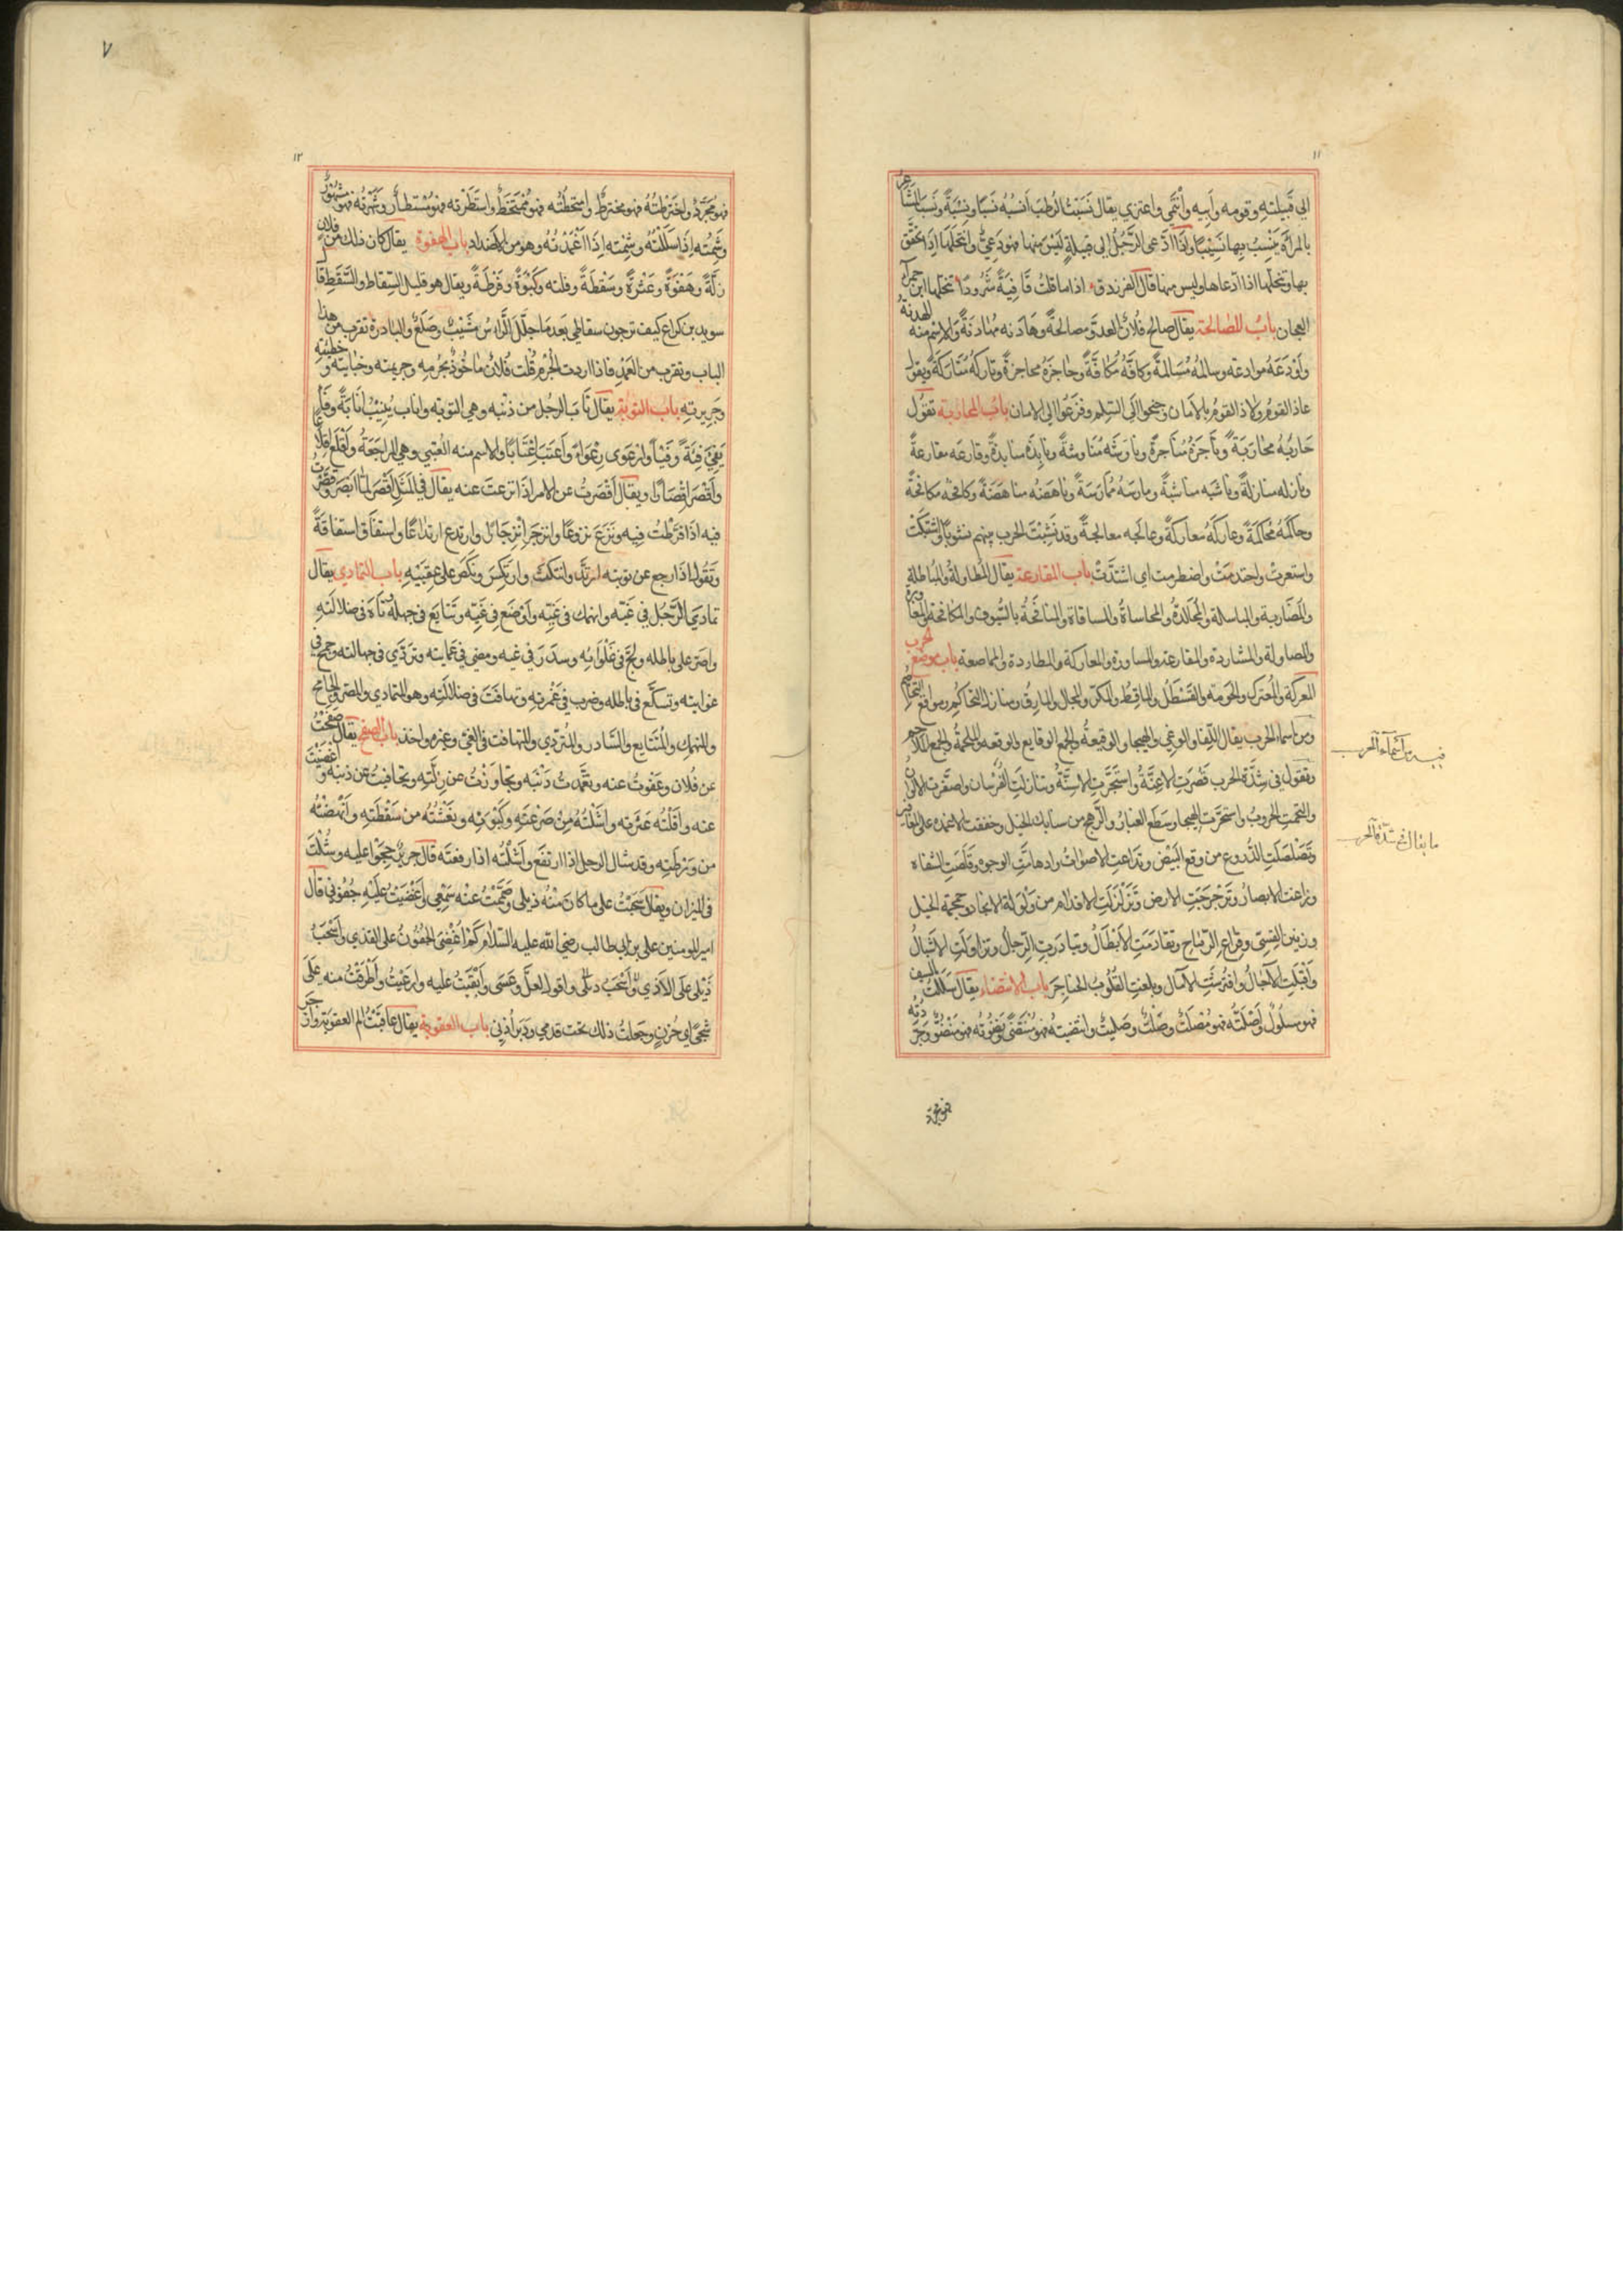 ١١
الي قَبيلتهِ وقومه وأبيه وانتمي واعتزي يقال نَسَبْتُ الرطب أنسُبُه نَسَبًا ونِسْبَةً ونَسَبَ الشاعرُ
بالمرأة يَنْسِبُ بها نَسِيْبًا وَاذا ادّعى الرَّجُل إلى قبيلةٍ لَيْسَ منها فهو دَعِيٌّ وانتحلَهَا إذا تحقّق
بها وتنحّلها اذا ادّعاها وليس منها قال الفرزدق اذا ما قلتُ قافِيَةً شَرُودًا تنحّلها ابن حمرآء
العجان باب المصالحة يقال صالح فلانٌ العدوَّ مصالحةً وهَادنه مُهَادَنَةً والاسم منه الهدنةُ
وَاوْدَعَهُ موادعة وسالمهُ مُسَالمةً وكافّهُ مُكافَّةً وحاجَزهُ محاجزةً وتاركهُ مُتَاركةً ويقول
عاذ القوم ولاذ القوم بالأمَان وجنحوا الى السِلم وفزعُوا الي الامان باب المحاربة تقول
حَاربَهُ محَارَبَةً ونَاجَزهُ مُنَاجَزةً وناوَشَه مُنَاوشةً ونابِذَه منابذةً وقارعَه مقارعةً
ونازله منازلةً وناشبَه مناشبةً ومارسَهُ مُمَارَسَةً وناهَضَهُ مناهَضَةً وكافحَهُ مكافحةً
وحَاكمَهُ مُحاكمَةً وعَاركَهُ معَاركةً وعالجَه معالجةً وقد نَشِبَتْ الحرب بينهم نشوبًا واشتبكَتْ
واستعرتْ واحتدمَتْ واضطرمت اي اشتدَّتْ باب المقارعة يقال المُطاولةُ والمُباطلة
والمضَاربة والمباسلة والمُجَالدةُ والمحاساةُ والمساقاة والمنافَحَةُ بالسُّيوف والمكافحة
والمصاولة والمشاردة والمقارعة والمساورة والمعاركة والمطاردة والمماصعة باب موضع الحرب
المَعركة والمُعترك والحَومة والقَسْطَل والماقِطُ والمكرّ والمجال والمازِقُ
ومن اسماء الحرب يقال اللقاء والوغى والهيجا والوقيعةُ والجمع الوقايع والوقعة والملحمةُ والجمع الملاحم
وتقول في شِدَّة الحرب قصُرَت الاعِنَّةُ واشتجَرَتِ الاسِنَّةُ وتنازلتِ الفُرسَان واصفرت الالوانُ
والتحمت الحروبُ واستحرّت الهيجا وسَطَع الغبارُ والرَّهج من سنابك الخيل وخفقت الاعمدة على
وتَصَلصَلَتِ الدُّروع من وقع البَيْض وتداعتِ الاصوَاتُ وادهامَّتِ الوجوه وقَلَصَتِ الشفاه
وزاغت الابصارُ وتَرَجْرَجَتِ الارض وتَزَلزَلَتِ الاقدَام من وَلوَلة الانجاد وحمحمة الخيل
ورَنين القِسِيّ وقِراع الرّماح وتقَادمَتِ الأبْطَالُ وتبادَرتِ الرّجالُ وتزاوَلَتِ الاشبالُ
وأقبلَتِ الآجَالُ وافترسَتِ الآمال وبلغت القلُوبُ الحناجِرَ باب الانتضاء يقال سَلَلتُ السيف
فهو مسلُولٌ وأصْلَتُّه فهو مُصْلَتٌ وصَلْتٌ وصَليتٌ وانتضيتُه فهو مُنتضًى ونضوتُه فهو منضُوٌّ وجرّدتُه
فهو مجرّد
فيه من أسْمآء الحرب
ما يقال في شدّة الحرب
٧
١٢
فهو مُجَرَّدٌ واخترطتُهُ فهو مخترطٌ وامتخطْتُه فهو مُمْتَخَطٌ واستطَرْته فهو مُسْتطارٌ وشَهَرتُه فهو مَشْهُورٌ
وشِمْتُه اِذا سَلَلْتُهُ وشِمْته اِذا اغْمَدْتُهُ وهو من الأضداد باب الهفوة يقال كان ذلك من فلانٍ
زَلَّةً وهَفْوَةً وعَثْرَةً وسَقطَةً وفلتة وكَبْوَةً وفَرْطَةً ويقال هو قليل السِّقاط والسَّقَطِ قال
سويد بن كراع كيف ترجون سقاطي بَعدَ مَا جلّل الرَّاسُ مَشيْبٌ وصَلَعْ والبادرة تقرب من هذا
الباب وتقرب من العَمْدِ فاذا اردت الجُرم قُلت فُلانٌ مَاخُوذٌ بجُرمِهِ وجريمته وجنايته وخطيئتِه
وجَرِيرتِهِ باب التوبة يقال تَابَ الرجُل من ذنبه وهي التوبة واناب يُنيْبُ انَابَةً وفاء
يَفِيءُ فِئَةً وفَيئًا وارعَوى رِعْوَاءً واعتَبَ اِعْتَابًا والاسم منه العُتبي وهي المراجَعَةُ واقلع اقلاعًا
واقصَرَ اِقْصَارًا ويقال اقْصَرتُ عن الامر اذا نزعتَ عنه يقال في المثل اقصَرَ لمّا ابصَرَ وقَصَّرْتُ
فيه اذا فَرّطْتُ فيه ونَزَعَ نزوعًا وانزجَرَ اِنْزِجَارًا وارتدع ارتداعًا واستفَاقَ استفاقةً
وتَقُولُ اذَا رجع عن توبته ارتدَّ وانتكثَ وارتكسَ ونكَصَ على عَقِبَيْهِ باب التمادي يقال
تمادَى الرَّجُل في غيّه وانهمك في غَيّه وأوْضَعَ في غَيّه وتَتايَع في جهله تاهَ في ضلالتهِ
واصَرّ على باطله ولجَّ في غلوَائه وسدَرَ في غيه ومضى في عَمَايته وتردّي في جهالته وجمح في
غوايته وتسكَّع في باطله وضرب في غَمْرتِهِ وتهافتَ في ضلالتِه وهو المتمادي والمصرّ والجامح
والمنهمك والمُتتايع والسَّادر والمُتردّي والمتهافت في الغيّ وغيره واحد باب الصفح يقال صفحْتُ
عن فُلان وعَفوتُ عنه وتغمَّدتُ ذنْبَه وتجَاوَزْتُ عن زلّتِه وتجافيتُ عن ذنبه وأغْضَيْتُ
عنه واقلْتُه عَثرته واشَلْتُهُ مِنْ صَرْعَتِهِ وكَبْوَتِهِ ونَعَشْتُه من سَقْطَتِه وأنهضْتُه
من وَرْطَتِه وقد شال الرجل اذا ارتفَعَ واشَلْتُه اذا رفعتَه قال جريرٌ
في الميزان ويقال سَحَبْتُ على ما كانَ مِنْهُ ذيلي وصَمَّمْتُ عنه سَمْعي واغْضَيْتُ عَلَيْهِ جُفُوْني قال
امير المومنين علي بن ابي طالب رضي الله عليه السلام كَمْ اُغْضِي الجُفُوْنَ على القذي واسْحَبُ
ذَيْلى علَى الاَذي واقول لعلَّ وعَسَى وأبْقَيتُ عليه وارعَيْتُ وأطْرقْتُ منه عَلَى
شَجًى اي حُزنٍ وجَعلتُ ذلك تحت قدمي ودَبرَ أذُنِي باب العقوبة يقال عاقبْتُ